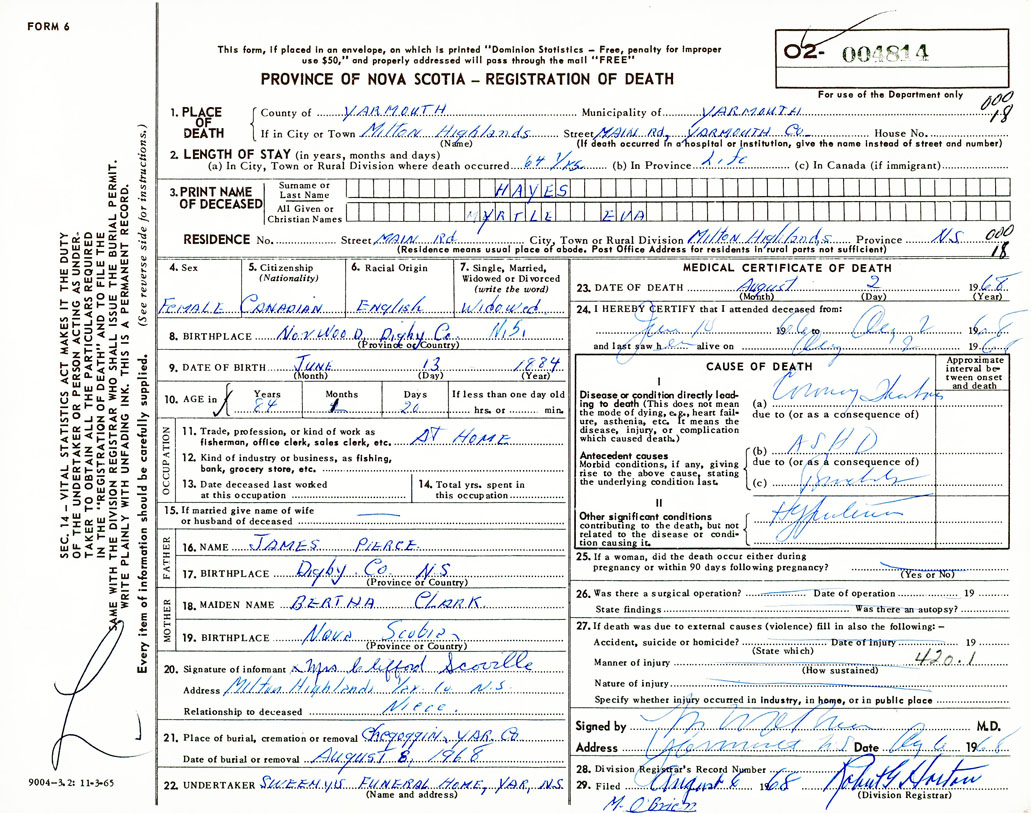 FORM 6
This form, if placed in an envelope, on which is printed "Dominion Statistics – Free, penalty for improper
use $50," and properly addressed will pass through the mail "FREE"
PROVINCE OF NOVA SCOTIA – REGISTRATION OF DEATH
02- 004814
For use of the Department only
000
18
1. PLACE OF DEATH
County of YARMOUTH Municipality of YARMOUTH
If in City or Town Milton Highlands Street MAIN Rd, YARMOUTH Co. House No.
(Name) (If death occurred in a hospital or institution, give the name instead of street and number)
2. LENGTH OF STAY (in years, months and days)
(a) In City, Town or Rural Division where death occurred 64 Yrs (b) In Province Life (c) In Canada (if immigrant)
3. PRINT NAME OF DECEASED
Surname or Last Name HAYES
All Given or Christian Names MYRTLE EVA
RESIDENCE No. Street MAIN Rd. City, Town or Rural Division Milton Highlands Province N.S. 000
(Residence means usual place of abode. Post Office Address for residents in rural parts not sufficient) 18
4. Sex FEMALE
5. Citizenship (Nationality) CANADIAN
6. Racial Origin English
7. Single, Married, Widowed or Divorced (write the word) Widowed
8. BIRTHPLACE NORWOOD, Digby Co. N.S.
(Province or Country)
9. DATE OF BIRTH JUNE 13 1884
(Month) (Day) (Year)
10. AGE in Years 84 Months 1 Days 20 If less than one day old hrs. or min.
OCCUPATION
11. Trade, profession, or kind of work as fisherman, office clerk, sales clerk, etc. AT HOME
12. Kind of industry or business, as fishing, bank, grocery store, etc.
13. Date deceased last worked at this occupation
14. Total yrs. spent in this occupation
15. If married give name of wife or husband of deceased —
FATHER
16. NAME JAMES PIERCE
17. BIRTHPLACE Digby Co. N.S.
(Province or Country)
MOTHER
18. MAIDEN NAME BERTHA CLARK
19. BIRTHPLACE NOVA Scotia
(Province or Country)
20. Signature of informant x Mrs Clifford Scoville
Address Milton Highlands Yar. Co N.S.
Relationship to deceased Niece.
21. Place of burial, cremation or removal Chegoggin YAR. Co
Date of burial or removal AUGUST 8, 1968
22. UNDERTAKER SWEENYS FUNERAL HOME, YAR, N.S
(Name and address)
MEDICAL CERTIFICATE OF DEATH
23. DATE OF DEATH August 2 1968
(Month) (Day) (Year)
24. I HEREBY CERTIFY that I attended deceased from:
14 19 to Aug 2 1968
and last saw her alive on Aug 2 1968
CAUSE OF DEATH
Approximate interval between onset and death
I
Disease or condition directly leading to death (This does not mean the mode of dying, e.g., heart failure, asthenia, etc. It means the disease, injury, or complication which caused death.)
(a) Coronary
due to (or as a consequence of)
Antecedent causes
Morbid conditions, if any, giving rise to the above cause, stating the underlying condition last.
(b) ASHD
due to (or as a consequence of)
(c)
II
Other significant conditions contributing to the death, but not related to the disease or condition causing it.
Hypertension
25. If a woman, did the death occur either during
pregnancy or within 90 days following pregnancy?
(Yes or No)
26. Was there a surgical operation? Date of operation 19
State findings Was there an autopsy?
27. If death was due to external causes (violence) fill in also the following: –
Accident, suicide or homicide? Date of injury 19
(State which)
Manner of injury 420.1
(How sustained)
Nature of injury
Specify whether injury occurred in industry, in home, or in public place
Signed by M.D.
Address Yarmouth N.S. Date Aug 6 1968
28. Division Registrar's Record Number
29. Filed August 6 1968 Robert G Horton
(Division Registrar)
M. O'Brien
SEC. 14 – VITAL STATISTICS ACT MAKES IT THE DUTY
OF THE UNDERTAKER OR PERSON ACTING AS UNDER-
TAKER TO OBTAIN ALL THE PARTICULARS REQUIRED
IN THE "REGISTRATION OF DEATH" AND TO FILE THE
SAME WITH THE DIVISION REGISTRAR WHO SHALL ISSUE THE BURIAL PERMIT.
WRITE PLAINLY WITH UNFADING INK. THIS IS A PERMANENT RECORD.
Every item of information should be carefully supplied. (See reverse side for instructions.)
9004-3.2: 11-3-65